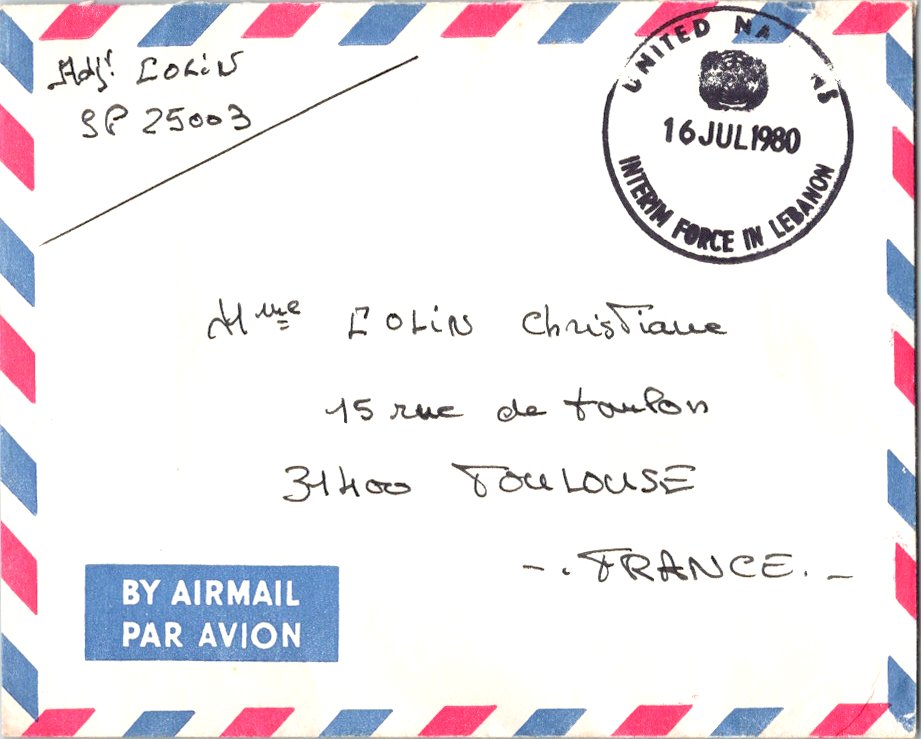 Adjt COLIN
SP 25003
UNITED NA NS
16 JUL 1980
INTERIM FORCE IN LEBANON
Mme COLIN Christiane
15 rue de toulon
31400 TOULOUSE
-. FRANCE. -
BY AIRMAIL
PAR AVION